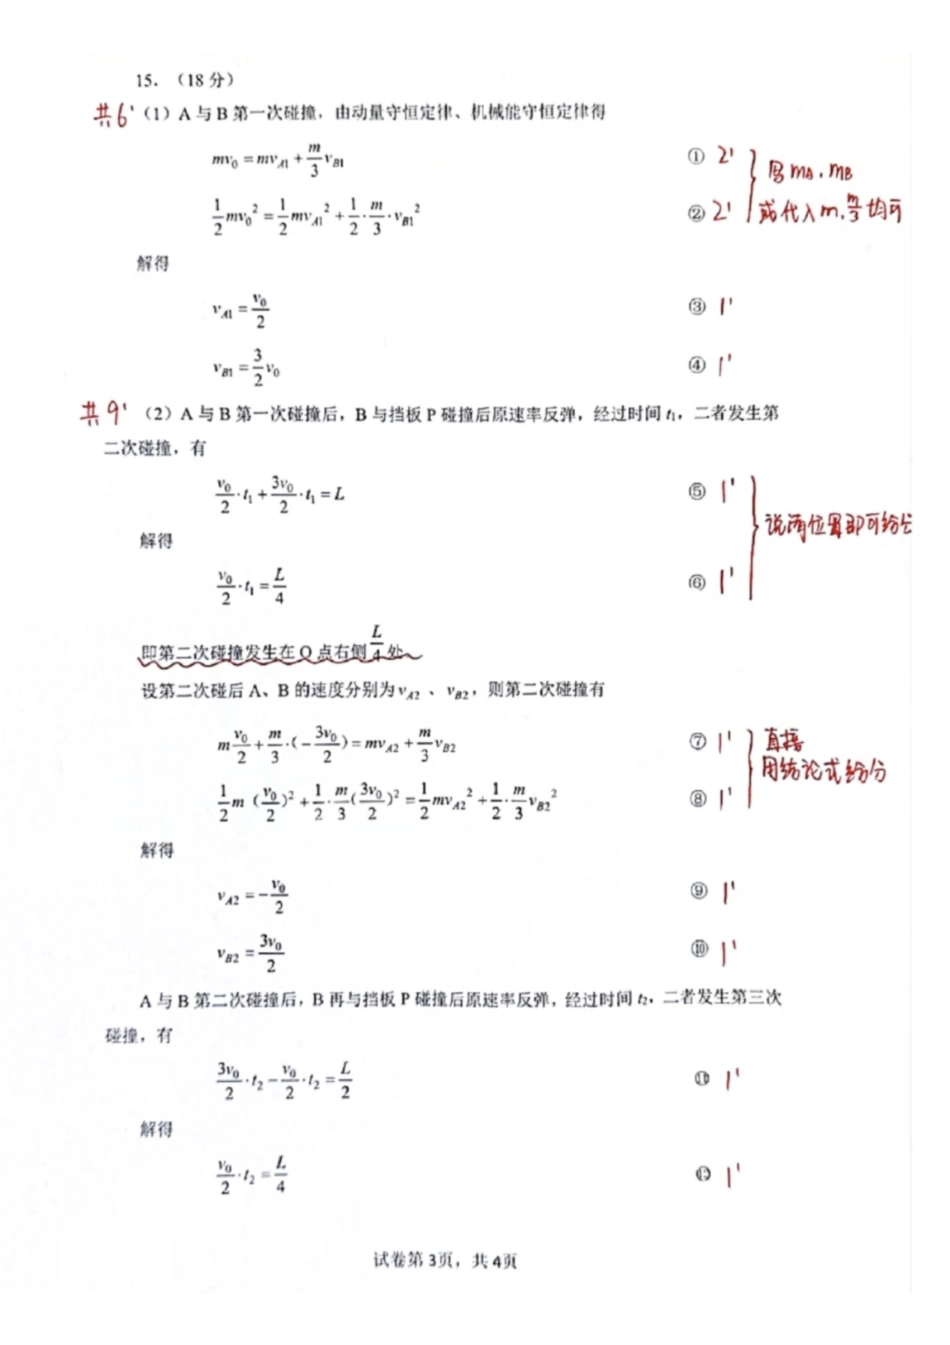 15. （18 分）
共6' （1）A 与 B 第一次碰撞，由动量守恒定律、机械能守恒定律得
mv₀ = mv_A1 + m/3 v_B1 ① 2'
写 mA、mB
1/2 mv₀² = 1/2 mv_A1² + 1/2 · m/3 · v_B1² ② 2' 或代入 m、m/3 均可
解得
v_A1 = v₀/2 ③ 1'
v_B1 = 3/2 v₀ ④ 1'
共9' （2）A 与 B 第一次碰撞后，B 与挡板 P 碰撞后原速率反弹，经过时间 t₁，二者发生第
二次碰撞，有
v₀/2 · t₁ + 3v₀/2 · t₁ = L ⑤ 1'
说两位置即可给分
解得
v₀/2 · t₁ = L/4 ⑥ 1'
即第二次碰撞发生在 Q 点右侧 L/4 处
设第二次碰后 A、B 的速度分别为 v_A2 、 v_B2，则第二次碰撞有
m v₀/2 + m/3 · (− 3v₀/2) = mv_A2 + m/3 v_B2 ⑦ 1' 直接
用结论式给分
1/2 m (v₀/2)² + 1/2 · m/3 (3v₀/2)² = 1/2 mv_A2² + 1/2 · m/3 v_B2² ⑧ 1'
解得
v_A2 = − v₀/2 ⑨ 1'
v_B2 = 3v₀/2 ⑩ 1'
A 与 B 第二次碰撞后，B 再与挡板 P 碰撞后原速率反弹，经过时间 t₂，二者发生第三次
碰撞，有
3v₀/2 · t₂ − v₀/2 · t₂ = L/2 ⑪ 1'
解得
v₀/2 · t₂ = L/4 ⑫ 1'
试卷第 3页，共 4页